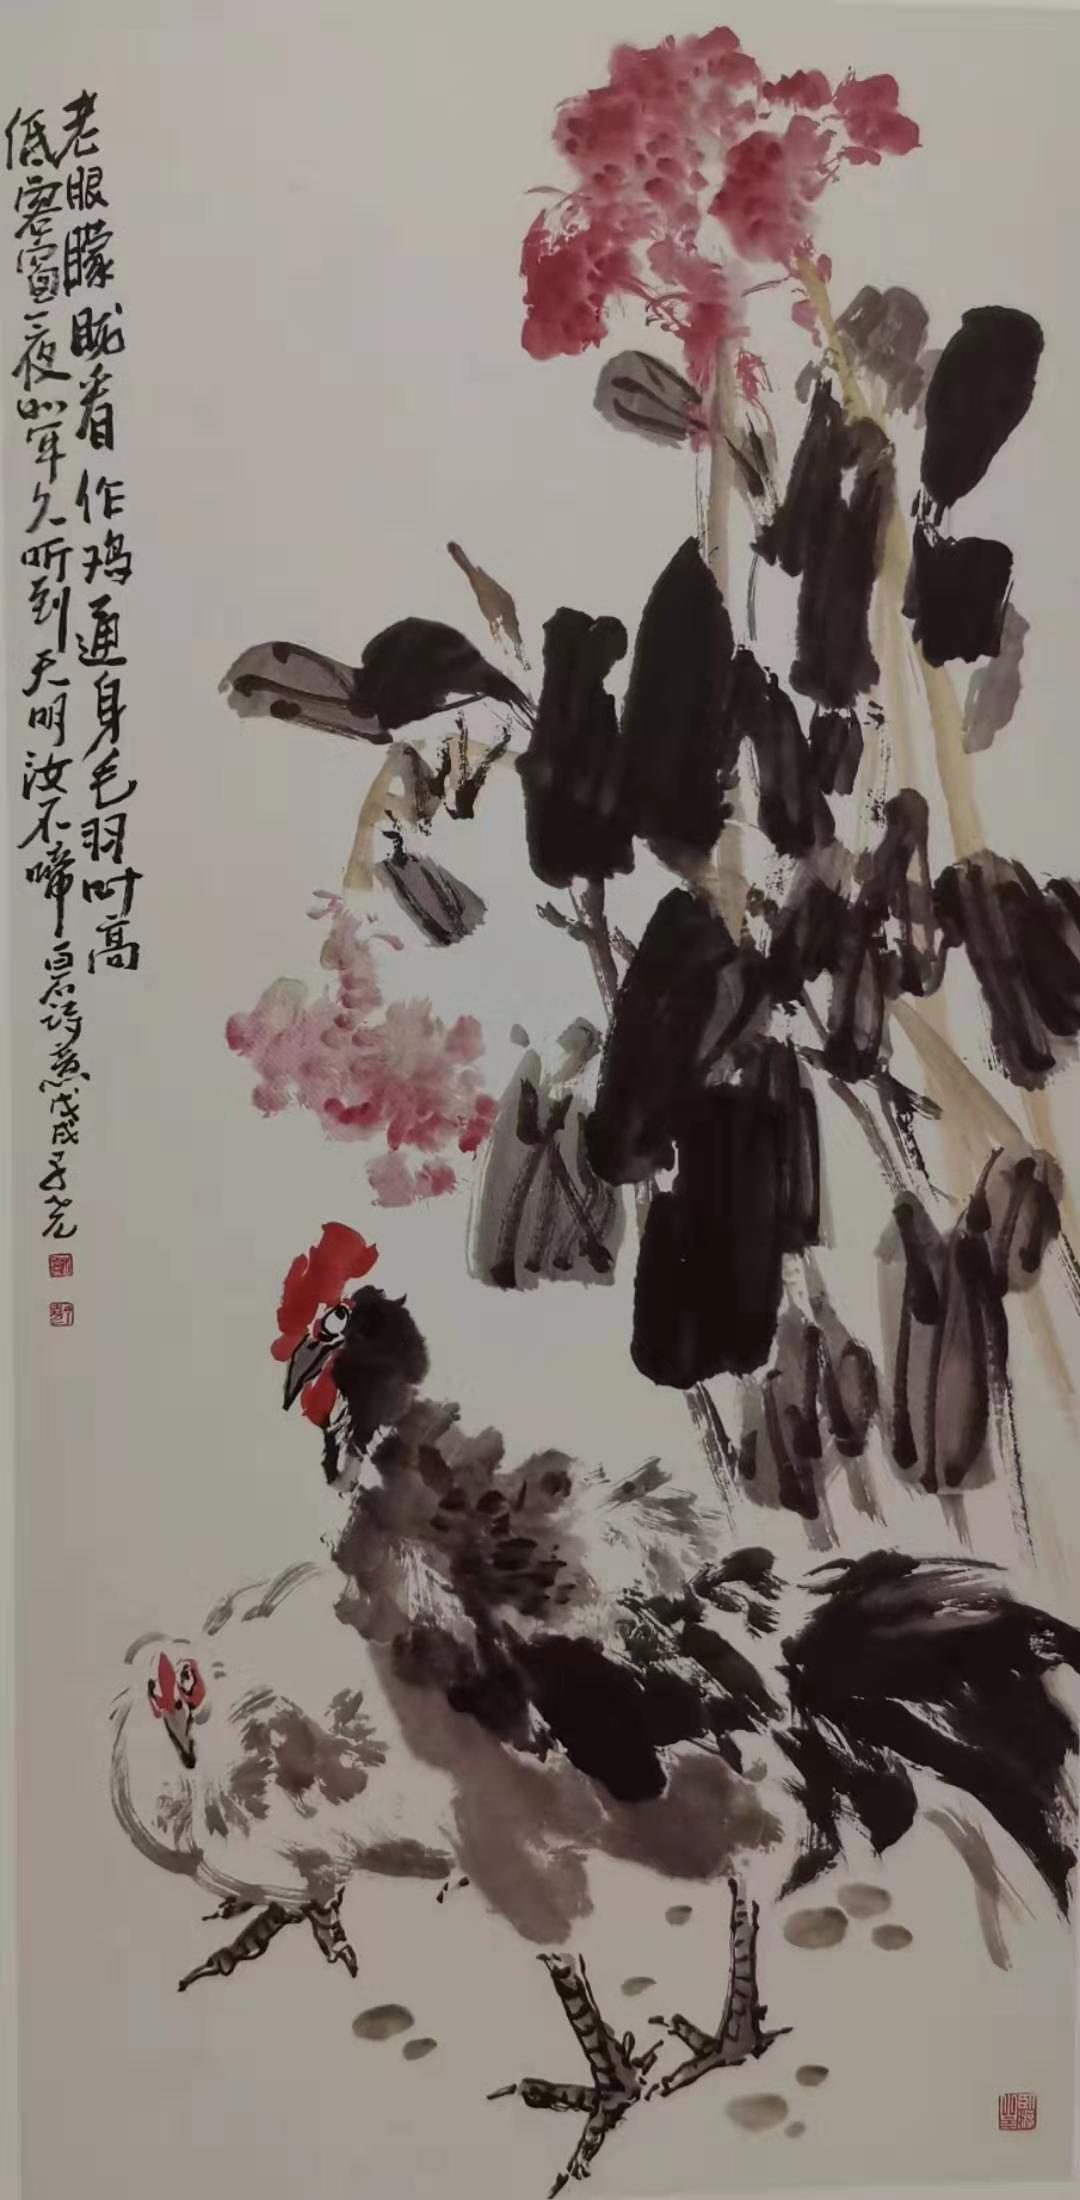 老眼朦胧看作鸡通身毛羽叶高
低客窗一夜如年久听到天明汝不啼白石诗意戊戌子光